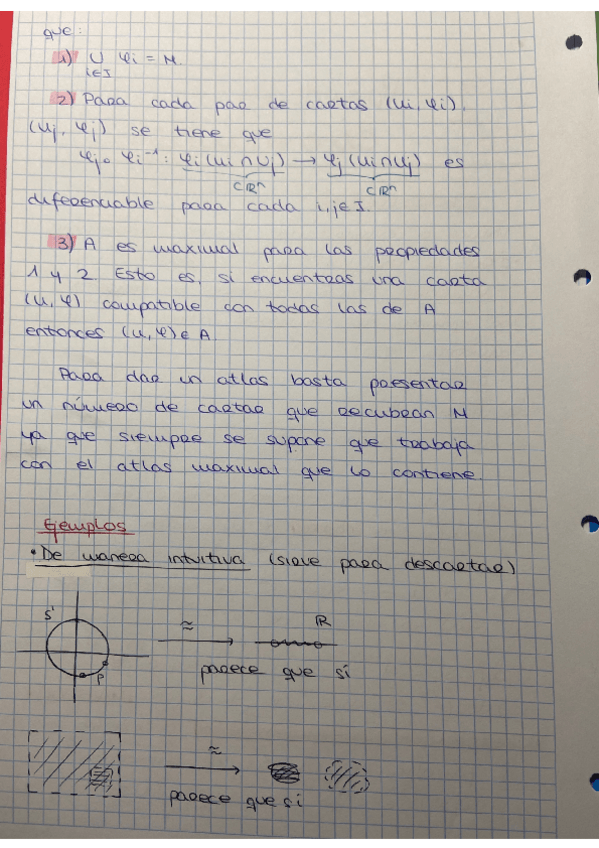 que:
1) ∪ φi = M.
i∈I
2) Para cada par de cartas (Ui, φi),
(Uj, φj) se tiene que
φj ∘ φi⁻¹: φi(Ui ∩ Uj) → φj(Ui ∩ Uj) es
⊂ℝⁿ ⊂ℝⁿ
diferenciable para cada i,j∈I.
3) A es maximal para las propiedades
1 y 2. Esto es, si encuentras una carta
(U, φ) compatible con todas las de A
entonces (U, φ) ∈ A
Para dar un atlas basta presentar
un número de cartas que recubran M
ya que siempre se supone que trabaja
con el atlas maximal que lo contiene.
Ejemplos
• De manera intuitiva (sirve para descartar)
S¹ ≈ ℝ
P parece que sí
≈
parece que sí